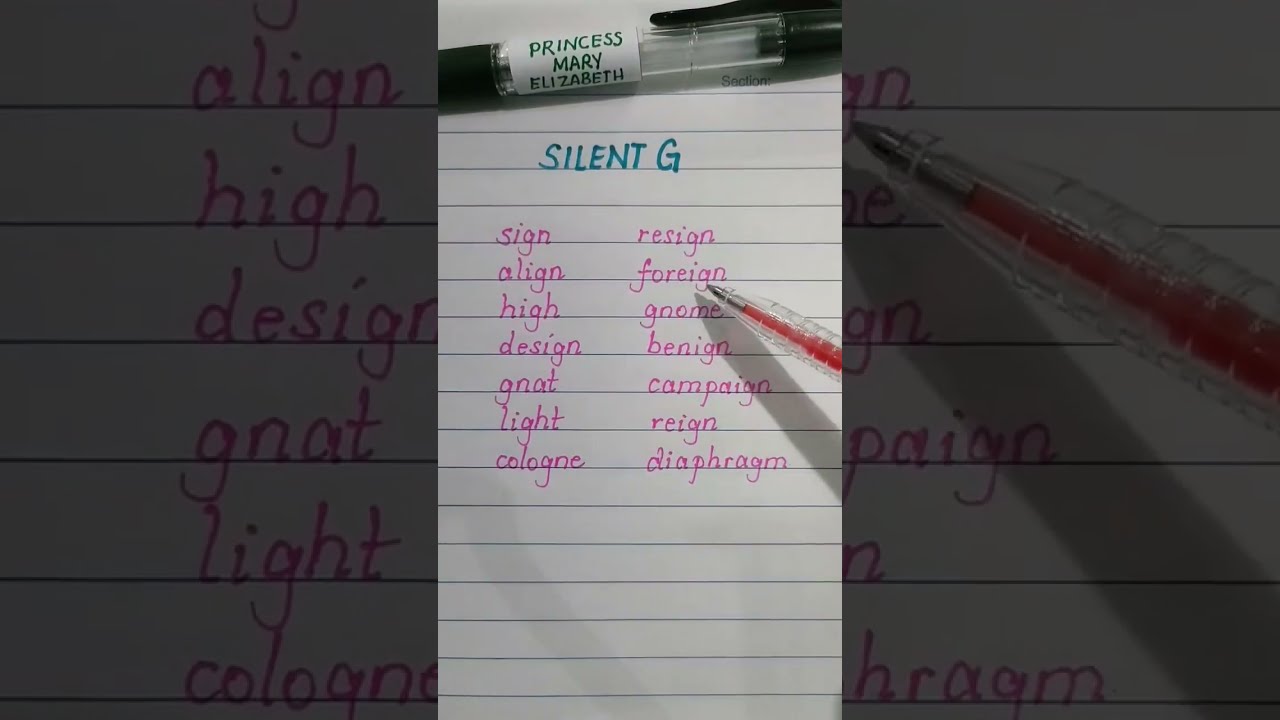 PRINCESS
MARY
ELIZABETH
Section:
SILENT G
sign resign
align foreign
high gnome
design benign
gnat campaign
light reign
cologne diaphragm